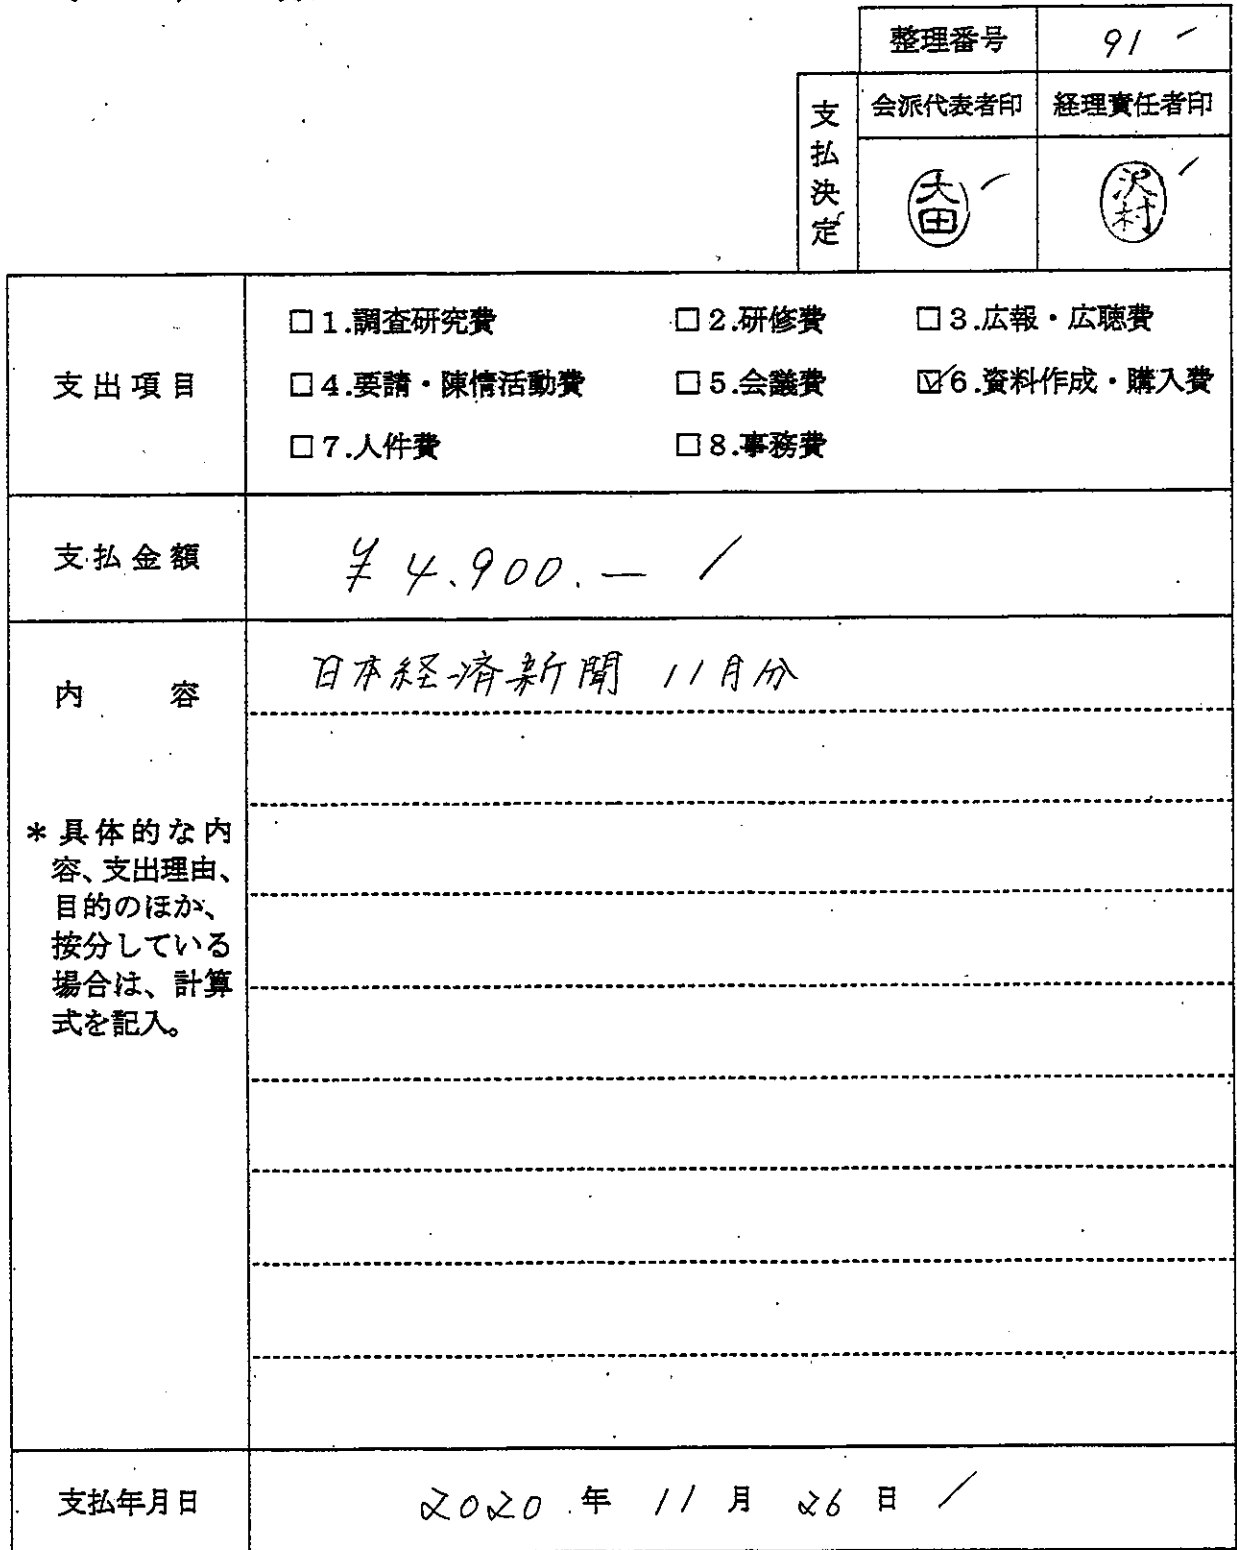 整理番号 91
支払決定
会派代表者印 経理責任者印
大田 沢村
支出項目
□1.調査研究費 □2.研修費 □3.広報・広聴費
□4.要請・陳情活動費 □5.会議費 ☑6.資料作成・購入費
□7.人件費 □8.事務費
支払金額 ¥4.900.―
内容 日本経済新聞 11月分
*具体的な内
容、支出理由、
目的のほか、
按分している
場合は、計算
式を記入。
支払年月日 2020年11月26日